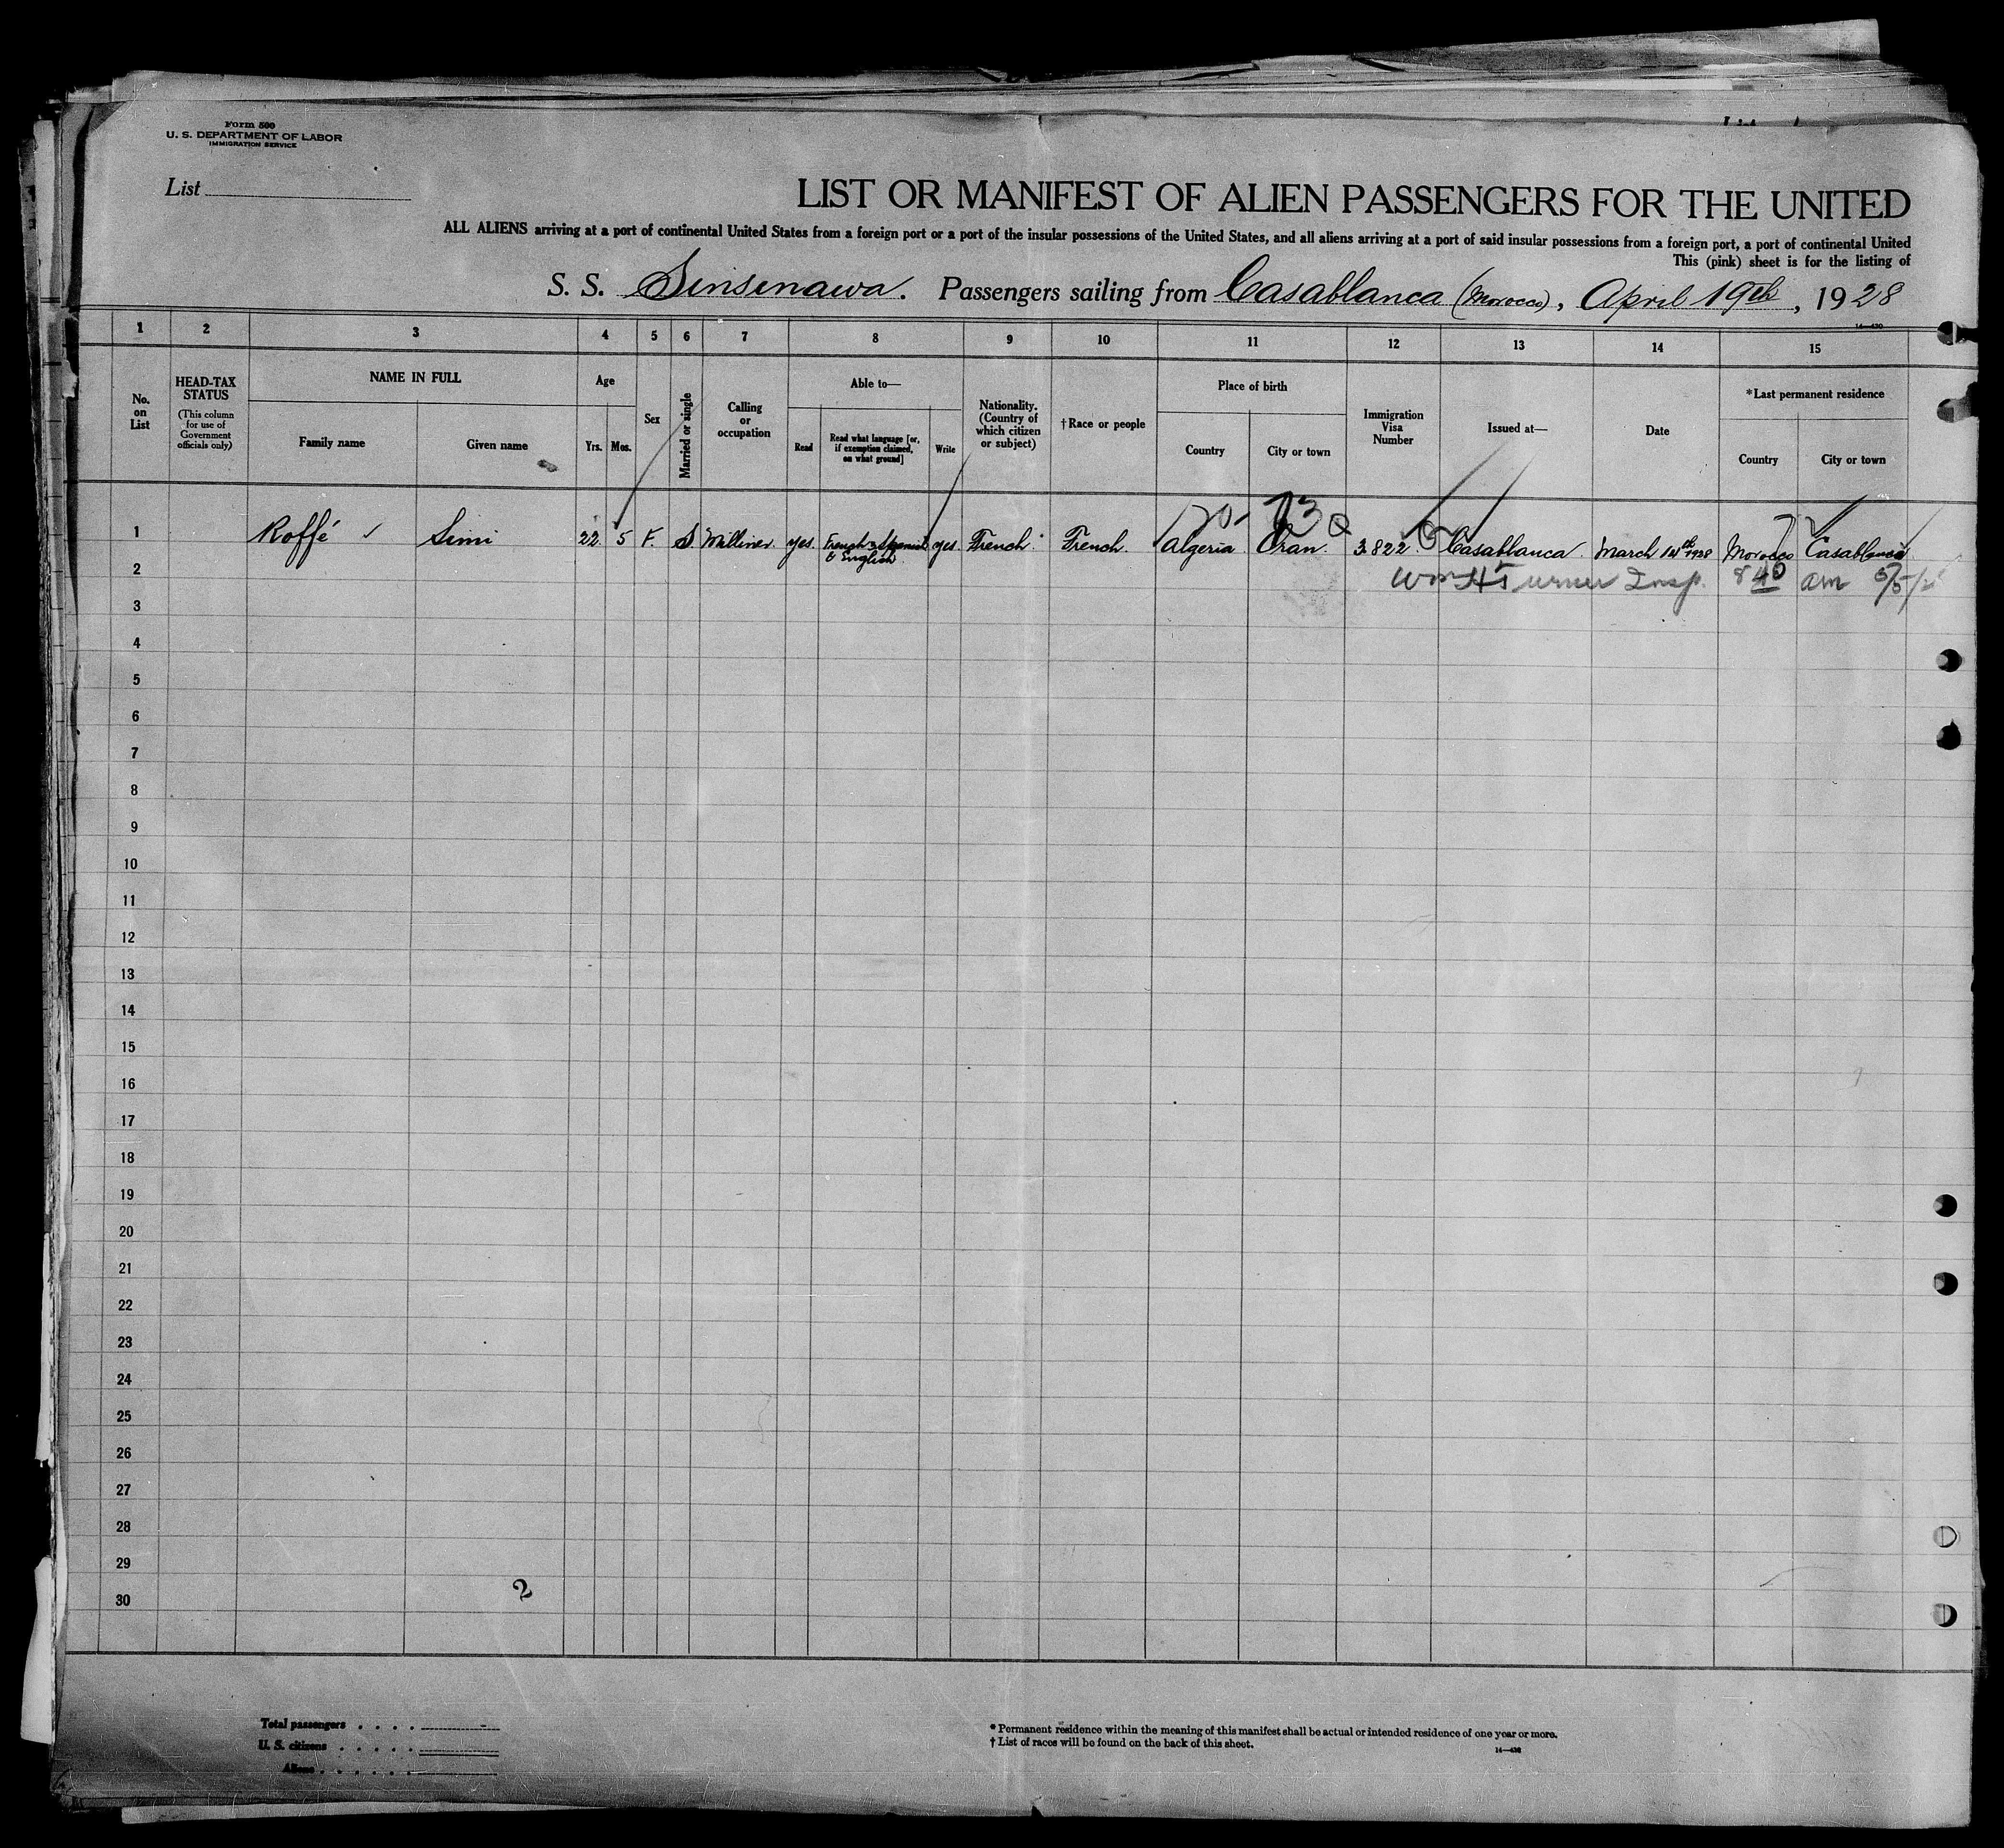 Form 500
U. S. DEPARTMENT OF LABOR
IMMIGRATION SERVICE
List
LIST OR MANIFEST OF ALIEN PASSENGERS FOR THE UNITED
ALL ALIENS arriving at a port of continental United States from a foreign port or a port of the insular possessions of the United States, and all aliens arriving at a port of said insular possessions from a foreign port, a port of continental United
This (pink) sheet is for the listing of
S. S. Sinsinawa. Passengers sailing from Casablanca (Morocco), April 19th, 1928
1 2 3 4 5 6 7 8 9 10 11 12 13 14 15
No. on List
HEAD-TAX STATUS
(This column for use of Government officials only)
NAME IN FULL
Family name
Given name
Age
Yrs.
Mos.
Sex
Married or single
Calling or occupation
Able to—
Read
Read what language [or, if exemption claimed, on what ground]
Write
Nationality. (Country of which citizen or subject)
†Race or people
Place of birth
Country
City or town
Immigration Visa Number
Issued at—
Date
*Last permanent residence
Country
City or town
1 Roffé Simi 22 5 F. S Milliner. yes. French Spanish & English yes. French French. Algeria Oran. 3822 Casablanca March 14th 1928 Morocco Casablanca
2 Wm H Turner Insp. 8 40 am 5/5/28
3
4
5
6
7
8
9
10
11
12
13
14
15
16
17
18
19
20
21
22
23
24
25
26
27
28
29
30
2
Total passengers
U. S. citizens
Aliens
* Permanent residence within the meaning of this manifest shall be actual or intended residence of one year or more.
† List of races will be found on the back of this sheet.
14—430